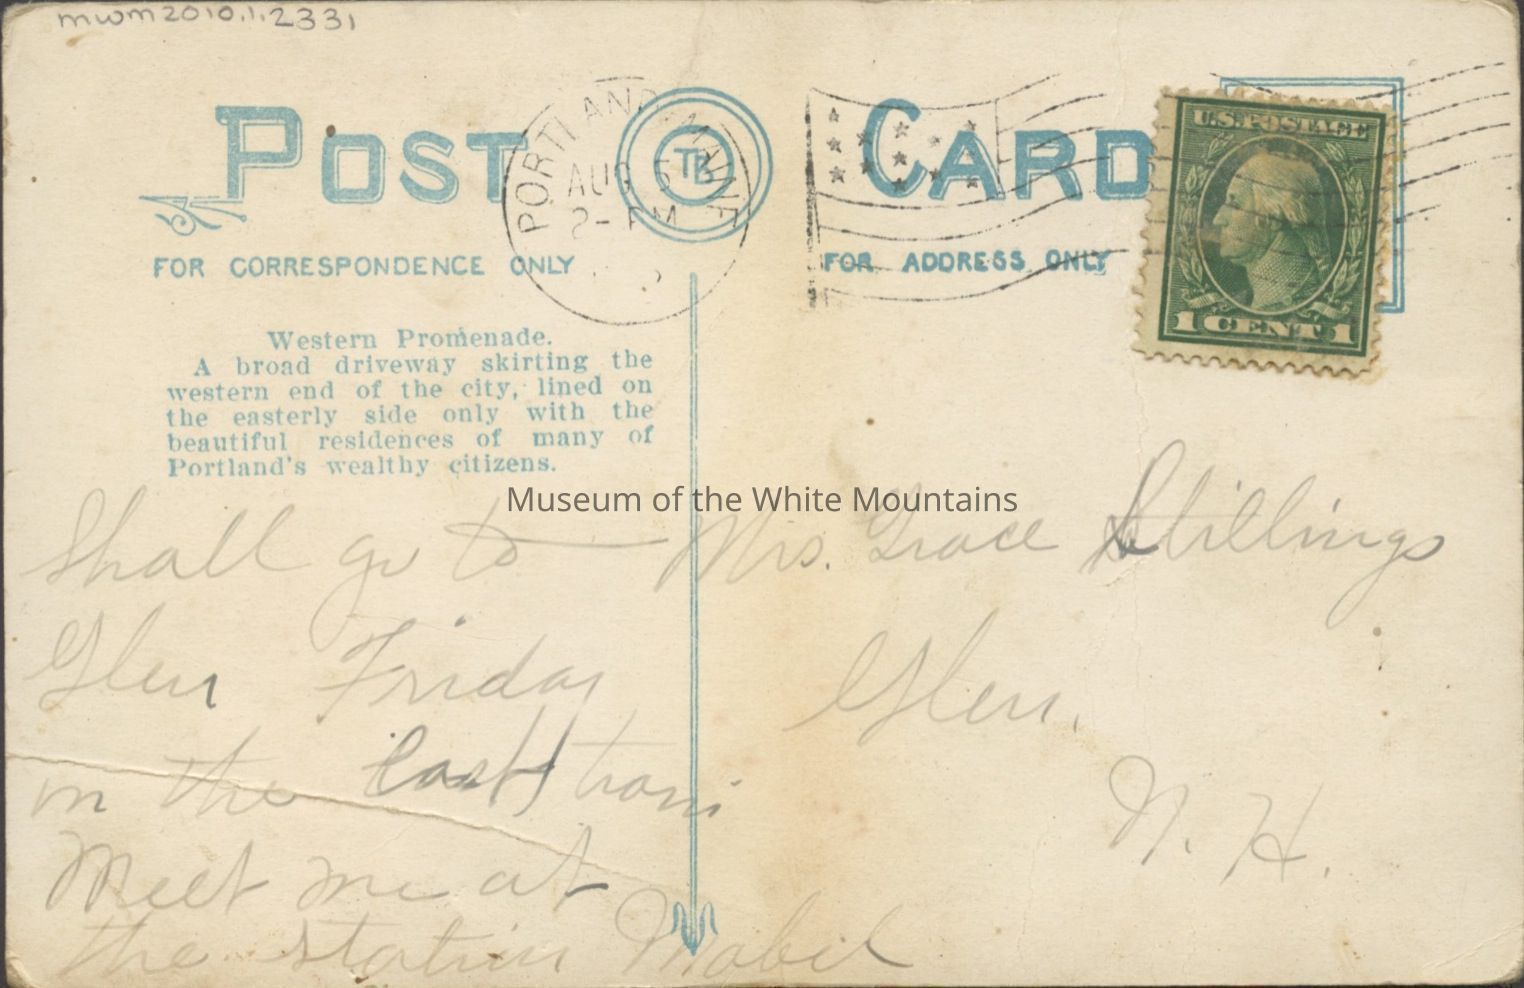 mwm2010.1.2331
POST CARD
PORTLAND MAINE
AUG 5
2-PM
TP
U.S. POSTAGE
1 CENT 1
FOR CORRESPONDENCE ONLY
FOR ADDRESS ONLY
Western Promenade.
A broad driveway skirting the
western end of the city, lined on
the easterly side only with the
beautiful residences of many of
Portland's wealthy citizens.
Museum of the White Mountains
Shall go to
Glen Friday
on the last train
Meet me at
the station Mabel
Mrs. Grace Stillings
Glen.
N. H.